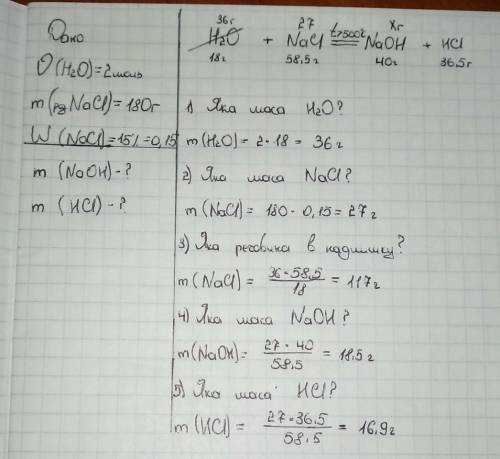 Дано
ν(H₂O)=2моль
m(рд NaCl)=180г
W(NaCl)=15%=0,15
m (NaOH)-?
m (HCl)-?
36г 27 t>500°C Xг
H₂O + NaCl ⇌ NaOH + HCl
18г 58,5г 40г 36,5г
1) Яка маса H₂O?
m(H₂O)= 2·18 = 36г
2) Яка маса NaCl?
m(NaCl)= 180·0,15=27г
3) Яка речовина в надлишку?
m(NaCl)= 36·58,5/18 = 117г
4) Яка маса NaOH?
m(NaOH)= 27·40/58,5 = 18,5г
5) Яка маса HCl?
m(HCl)= 27·36,5/58,5 = 16,9г